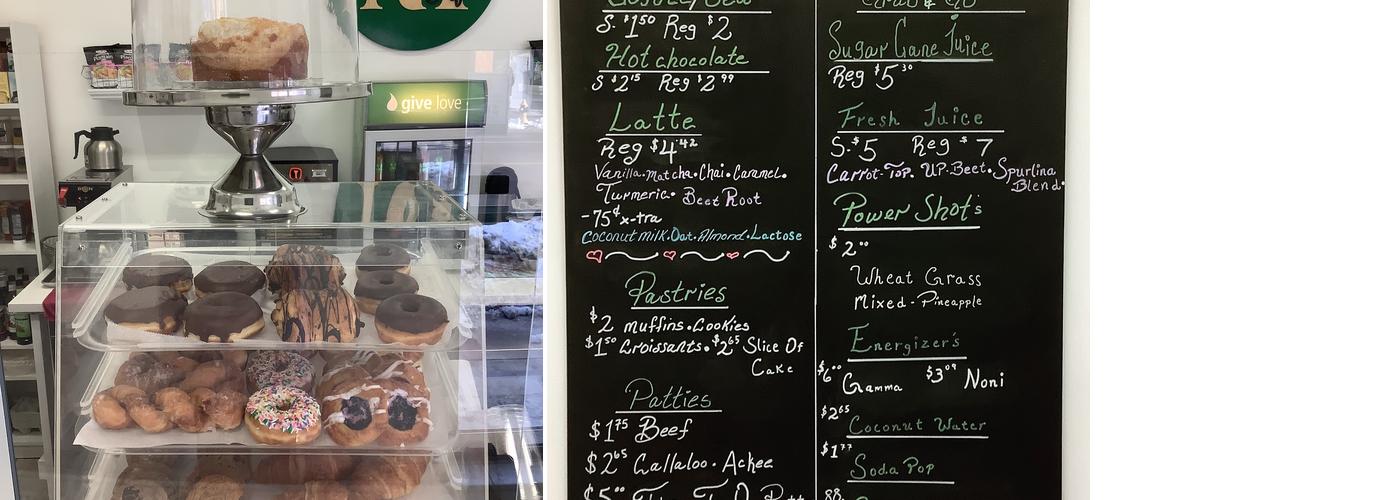 give love
S. $1.50 Reg $2
Hot chocolate
S $2.15 Reg $2.99
Latte
Reg $4.42
Vanilla. Matcha. Chai. Caramel.
Turmeric. Beet Root
-75¢ x-tra
Coconut milk. Oat. Almond. Lactose
Pastries
$2 muffins. Cookies
$1.50 Croissants. $2.65 Slice Of
Cake
Patties
$1.75 Beef
$2.65 Callaloo. Ackee
$5.00
Sugar Cane Juice
Reg $5.30
Fresh Juice
S. $5 Reg $7
Carrot-Top. UP-Beet. Spurlina
Blend.
Power Shot's
$2.00
Wheat Grass
Mixed - Pineapple
Energizer's
$6.00 Gamma $3.09 Noni
$2.65
Coconut Water
$1.77
Soda Pop